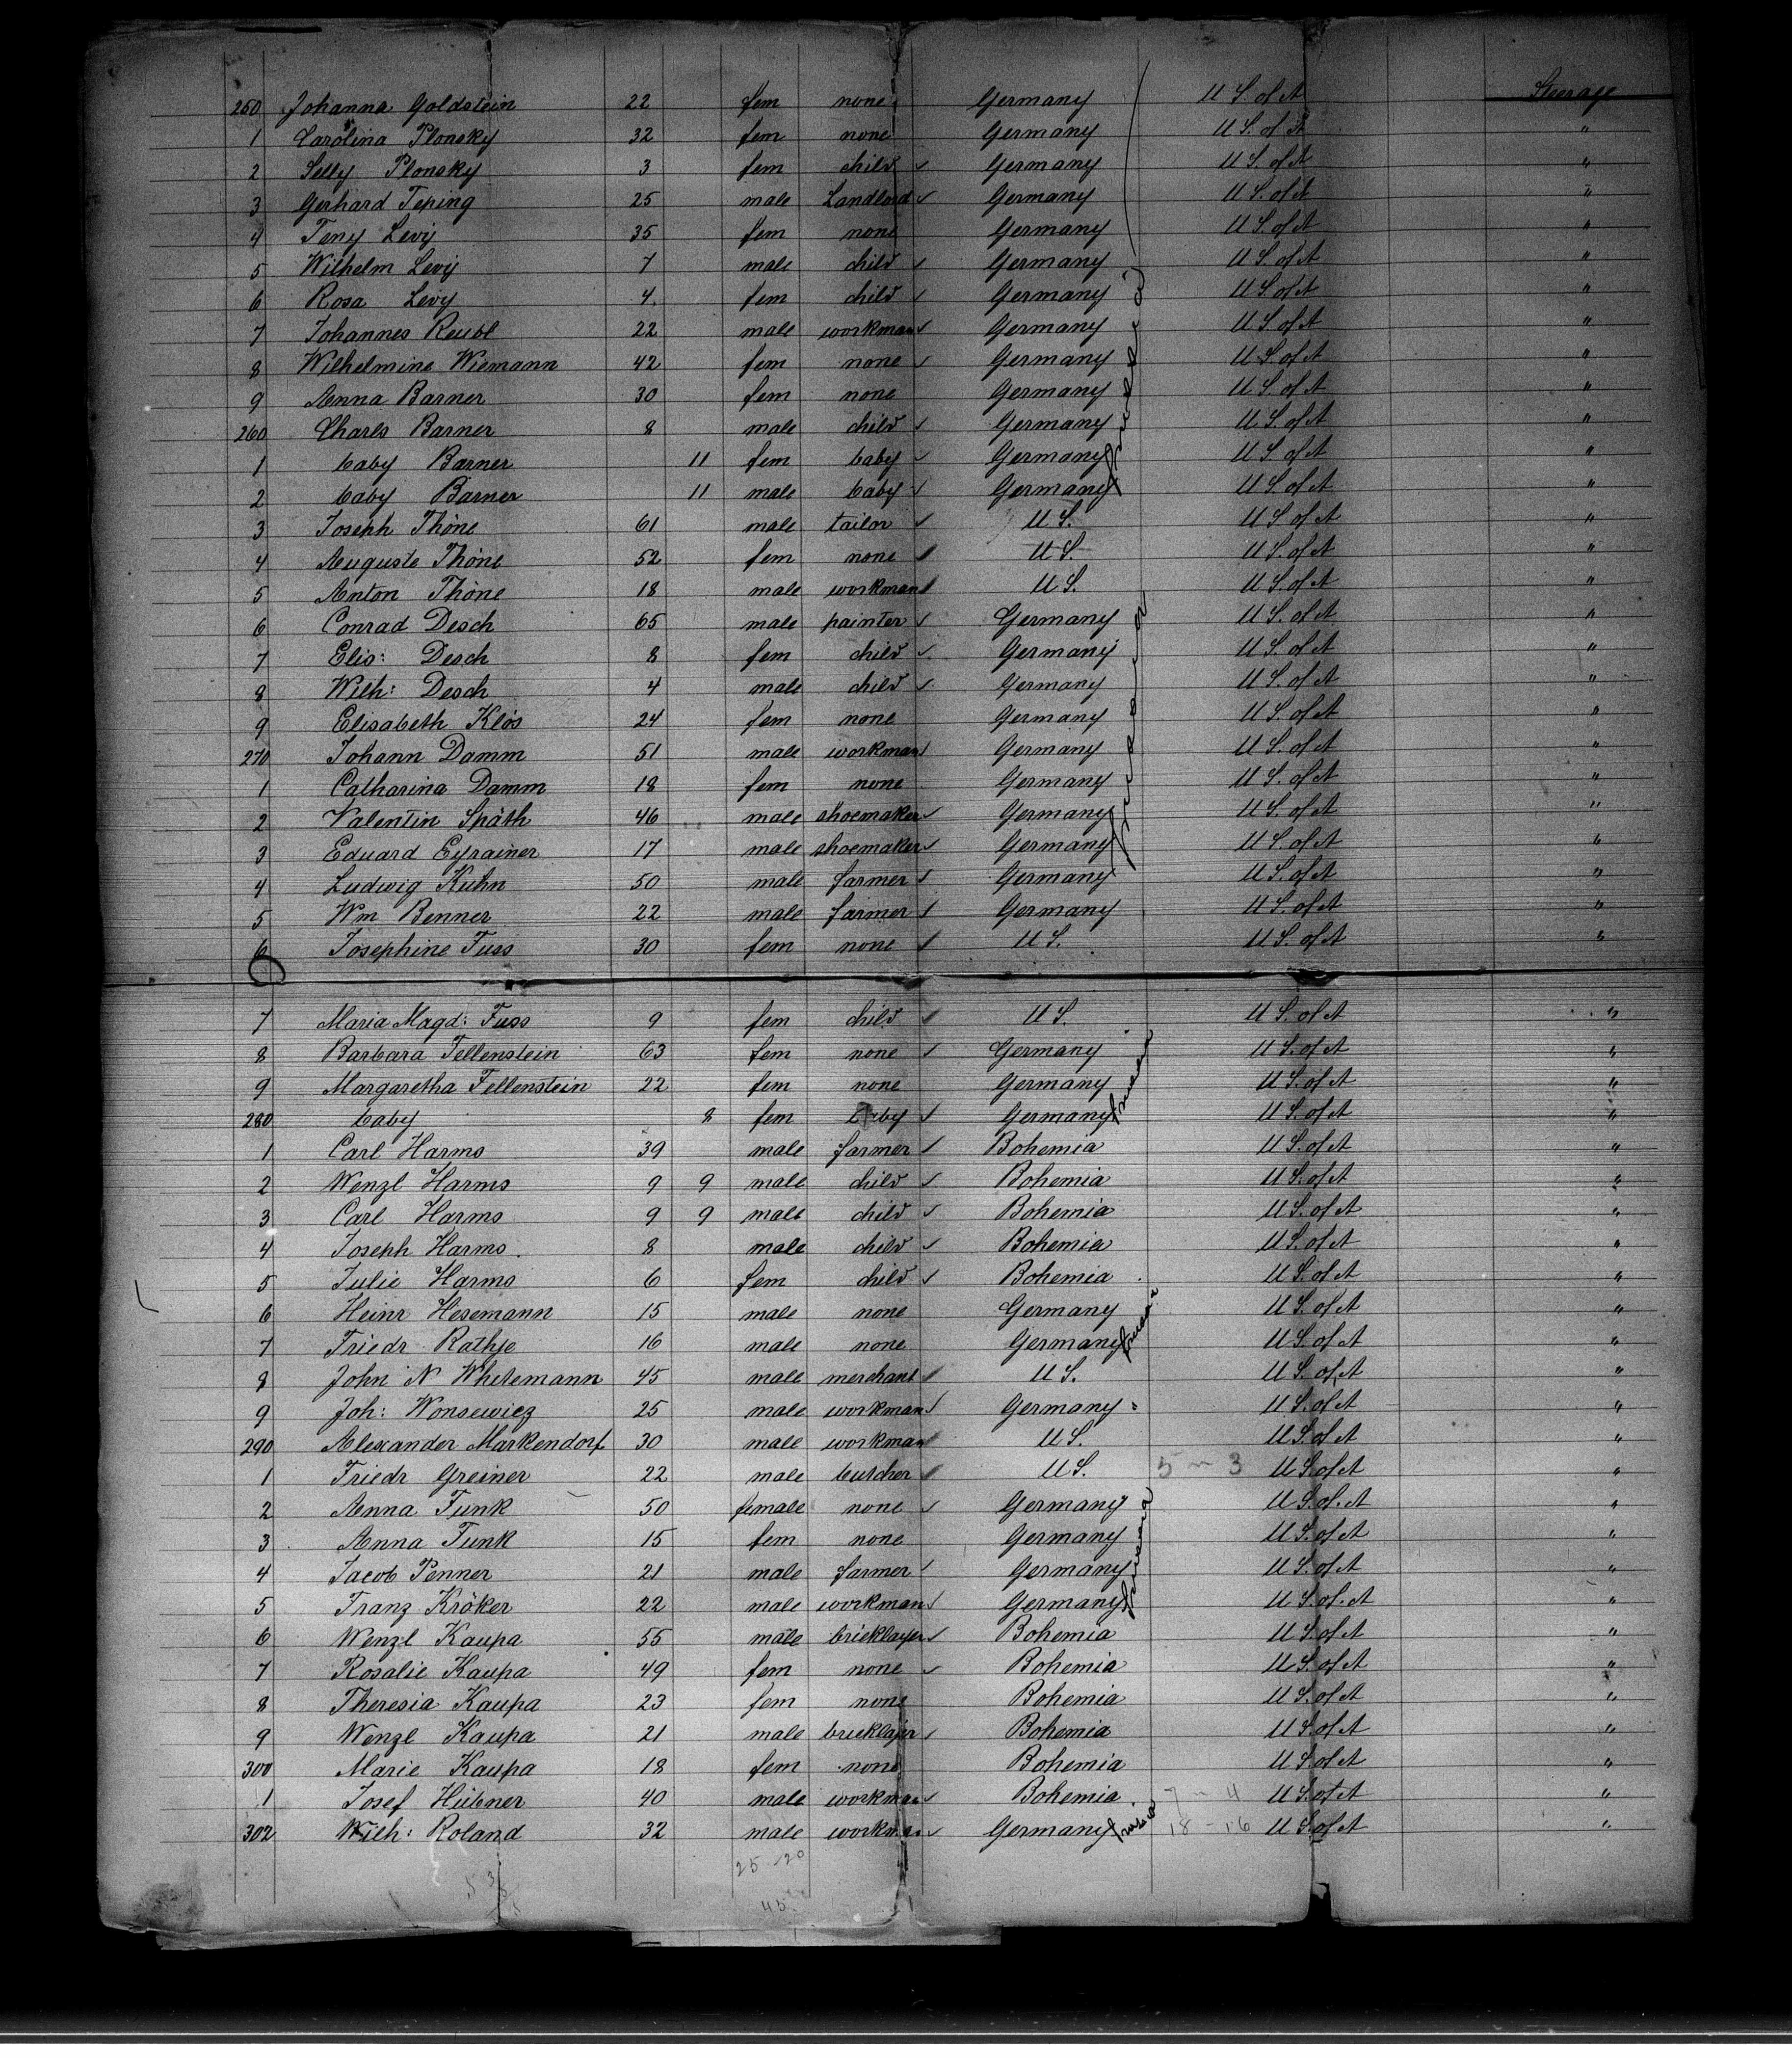 250 Johanna Goldstein 22 fem none Germany U S. of A Steerage
1 Carolina Plonsky 32 fem none Germany U S. of A "
2 Selly Plonsky 3 fem child ✓ Germany U S. of A "
3 Gerhard Teping 25 male Landlord ✓ Germany U S. of A "
4 Teny Levy 35 fem none Germany U S. of A "
5 Wilhelm Levy 7 male child ✓ Germany U S. of A "
6 Rosa Levy 4 fem child ✓ Germany U S. of A "
7 Johannes Reubl 22 male workman ✓ Germany U S. of A "
8 Wilhelmine Wiemann 42 fem none ✓ Germany U S. of A "
9 Anna Barner 30 fem none Germany U S. of A "
260 Charls Barner 8 male child ✓ Germany U S. of A "
1 baby Barner 11 fem baby ✓ Germany U S. of A "
2 baby Barner 11 male baby ✓ Germany U S. of A "
3 Joseph Thöne 61 male tailor ✓ U S. U S. of A "
4 Auguste Thöne 52 fem none U S. U S. of A "
5 Anton Thöne 18 male workman U S. U S. of A "
6 Conrad Desch 65 male painter ✓ Germany U S. of A "
7 Elis: Desch 8 fem child ✓ Germany U S. of A "
8 Wilh: Desch 4 male child ✓ Germany U S. of A "
9 Elisabeth Klös 24 fem none Germany U S. of A "
270 Johann Damm 51 male workman ✓ Germany U S. of A "
1 Catharina Damm 18 fem none Germany U S. of A "
2 Valentin Späth 46 male shoemaker ✓ Germany U S. of A "
3 Eduard Eyrainer 17 male shoemaker ✓ Germany U S. of A "
4 Ludwig Kuhn 50 male farmer ✓ Germany U S. of A "
5 Wm Benner 22 male farmer ✓ Germany U S. of A "
6 Josephine Fuss 30 fem none U S. U S. of A "
7 Maria Magd: Fuss 9 fem child U S. U S. of A "
8 Barbara Fellenstein 63 fem none ✓ Germany U S. of A "
9 Margaretha Fellenstein 22 fem none Germany U S. of A "
280 baby 8 fem baby ✓ Germany prussia U S. of A "
1 Carl Harms 39 male farmer ✓ Bohemia U S. of A "
2 Wenzl Harms 9 9 male child ✓ Bohemia U S. of A "
3 Carl Harms 9 9 male child ✓ Bohemia U S. of A "
4 Joseph Harms. 8 male child ✓ Bohemia U S. of A "
5 Julie Harms 6 fem child ✓ Bohemia U S. of A "
6 Heinr Hesemann 15 male none Germany U S. of A "
7 Friedr Rathje 16 male none Germany U S. of A "
8 John N Whitemann 45 male merchant U S. U S. of A "
9 Joh: Wonsewicz 25 male workman ✓ Germany " U S. of A "
290 Alexander Markendorf 30 male workman U S. U S. of A "
1 Friedr Greiner 22 male butcher U S. 5 – 3 U S. of A "
2 Anna Funk 50 female none ✓ Germany U S. of A "
3 Anna Funk 15 fem none Germany U S. of A "
4 Jacob Penner 21 male farmer ✓ Germany U S. of A "
5 Franz Kröker 22 male workman ✓ Germany prussia U S. of A "
6 Wenzl Kaupa 55 male bricklayer ✓ Bohemia U S. of A "
7 Rosalie Kaupa 49 fem none ✓ Bohemia U S. of A "
8 Theresia Kaupa 23 fem none Bohemia U S. of A "
9 Wenzl Kaupa 21 male bricklayer ✓ Bohemia U S. of A "
300 Marie Kaupa 18 fem none Bohemia U S. of A "
1 Josef Hübner 40 male workman ✓ Bohemia 7 – 4 U S. of A "
302 Wilh: Roland 32 male workman ✓ Germany prussia 18 – 16 U S. of A "
25 – 20
45